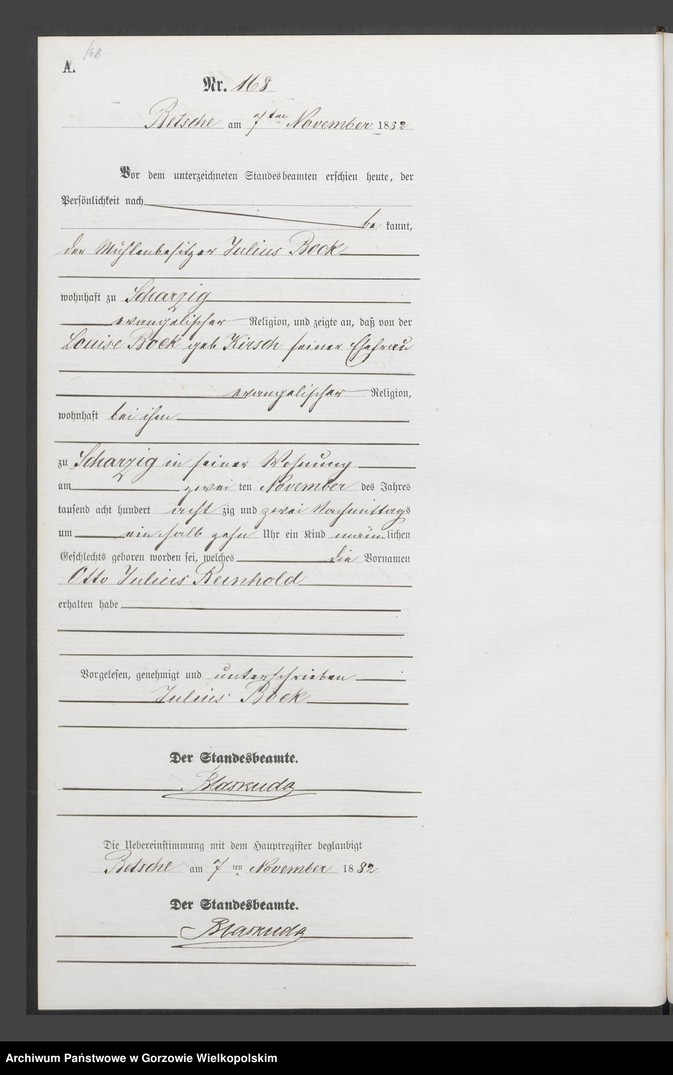 168
A.
Nr. 168
Betsche am 7ten November 1882
Vor dem unterzeichneten Standesbeamten erschien heute, der
Persönlichkeit nach
be kannt,
der Mühlenbesitzer Julius Bock
wohnhaft zu Scharzig
evangelischer Religion, und zeigte an, daß von der
Louise Bock geb Kirsch seiner Ehefrau
evangelischer Religion,
wohnhaft bei ihm
zu Scharzig in seiner Wohnung
am zwei ten November des Jahres
tausend acht hundert acht zig und zwei Nachmittags
um ein halb zehn Uhr ein Kind männlichen
Geschlechts geboren worden sei, welches die Vornamen
Otto Julius Reinhold
erhalten habe
Vorgelesen, genehmigt und unterschrieben
Julius Bock
Der Standesbeamte.
Die Uebereinstimmung mit dem Hauptregister beglaubigt
Betsche am 7 ten November 1882
Der Standesbeamte.
Archiwum Państwowe w Gorzowie Wielkopolskim